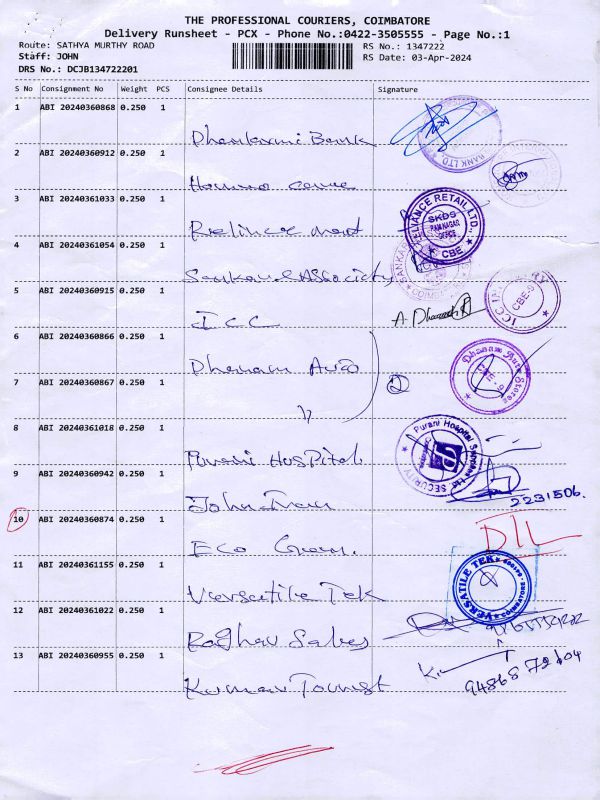 THE PROFESSIONAL COURIERS, COIMBATORE
Delivery Runsheet - PCX - Phone No.:0422-3505555 - Page No.:1
Route: SATHYA MURTHY ROAD
RS No.: 1347222
Staff: JOHN
RS Date: 03-Apr-2024
DRS No.: DCJB134722201
S No Consignment No Weight PCS Consignee Details Signature
1 ABI 20240360868 0.250 1
Dhanlaxmi Bank
BANK LTD.
2 ABI 20240360912 0.250 1
3 ABI 20240361033 0.250 1
Relince mart
RELIANCE RETAIL LTD.
SKDS
RAM NAGAR
OFFICE
CBE
4 ABI 20240361054 0.250 1
Sankar & Associcty
5 ABI 20240360915 0.250 1
ICC
CBE-9
6 ABI 20240360866 0.250 1
Dhanam Auto
2
Dhanam Auto Stores
7 ABI 20240360867 0.250 1
8 ABI 20240361018 0.250 1
Purani Hospital
Purani Hospital
SECURITY
9 ABI 20240360942 0.250 1
2231506.
10 ABI 20240360874 0.250 1
Eco Green.
DIL
11 ABI 20240361155 0.250 1
Versatile Tek
VERSATILE TEK
COIMBATORE
12 ABI 20240361022 0.250 1
Raghav Sales
13 ABI 20240360955 0.250 1
Kumar Tourist
94868 72604